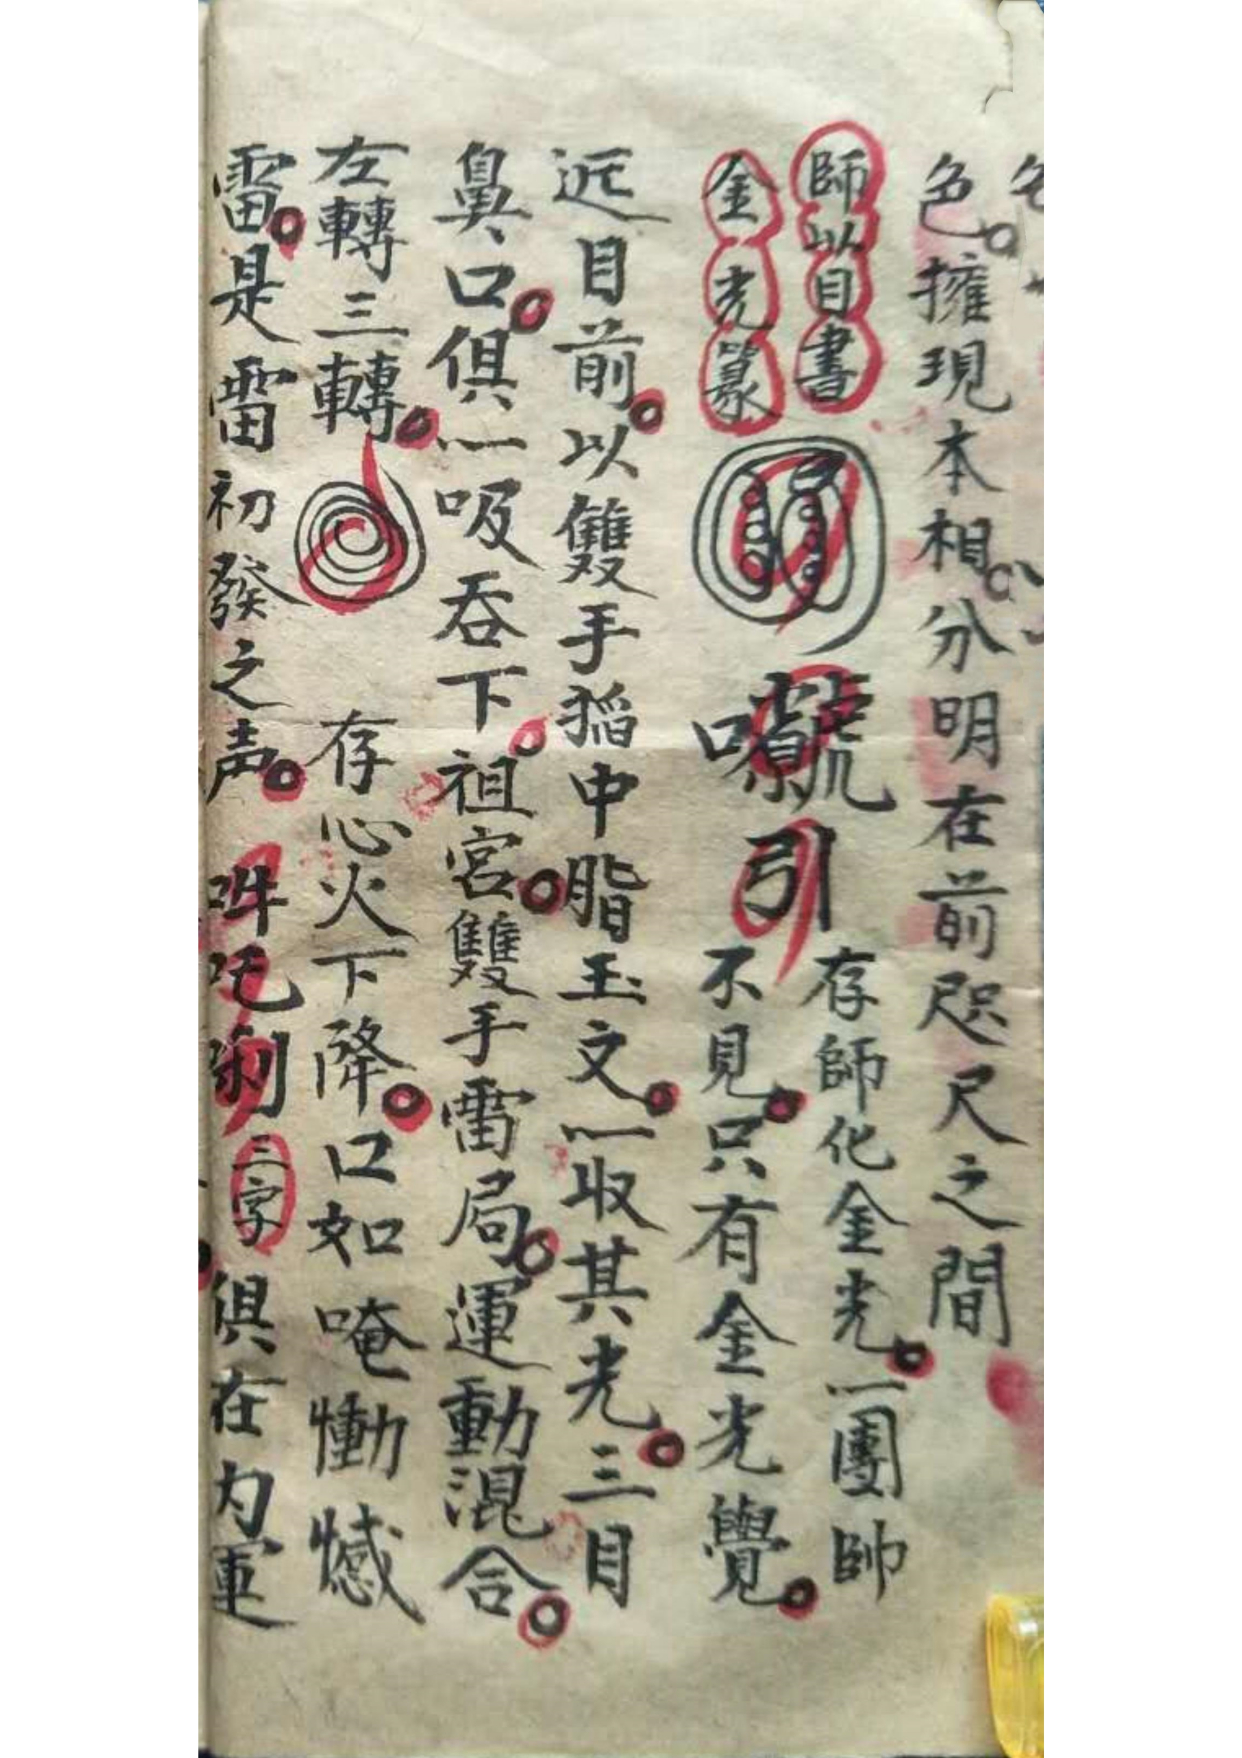 色擁現本相分明在前咫尺之間
師以目書
金光篆
引
存師化金光一團帥
不見只有金光覺
近目前以雙手搯中脂玉文一收其光三目
鼻口俱一吸吞下祖宮雙手雷局運動混合
左轉三轉 存心火下降口如唵慟憾
雷是雷初發之声 吽吒唎三字俱在内運